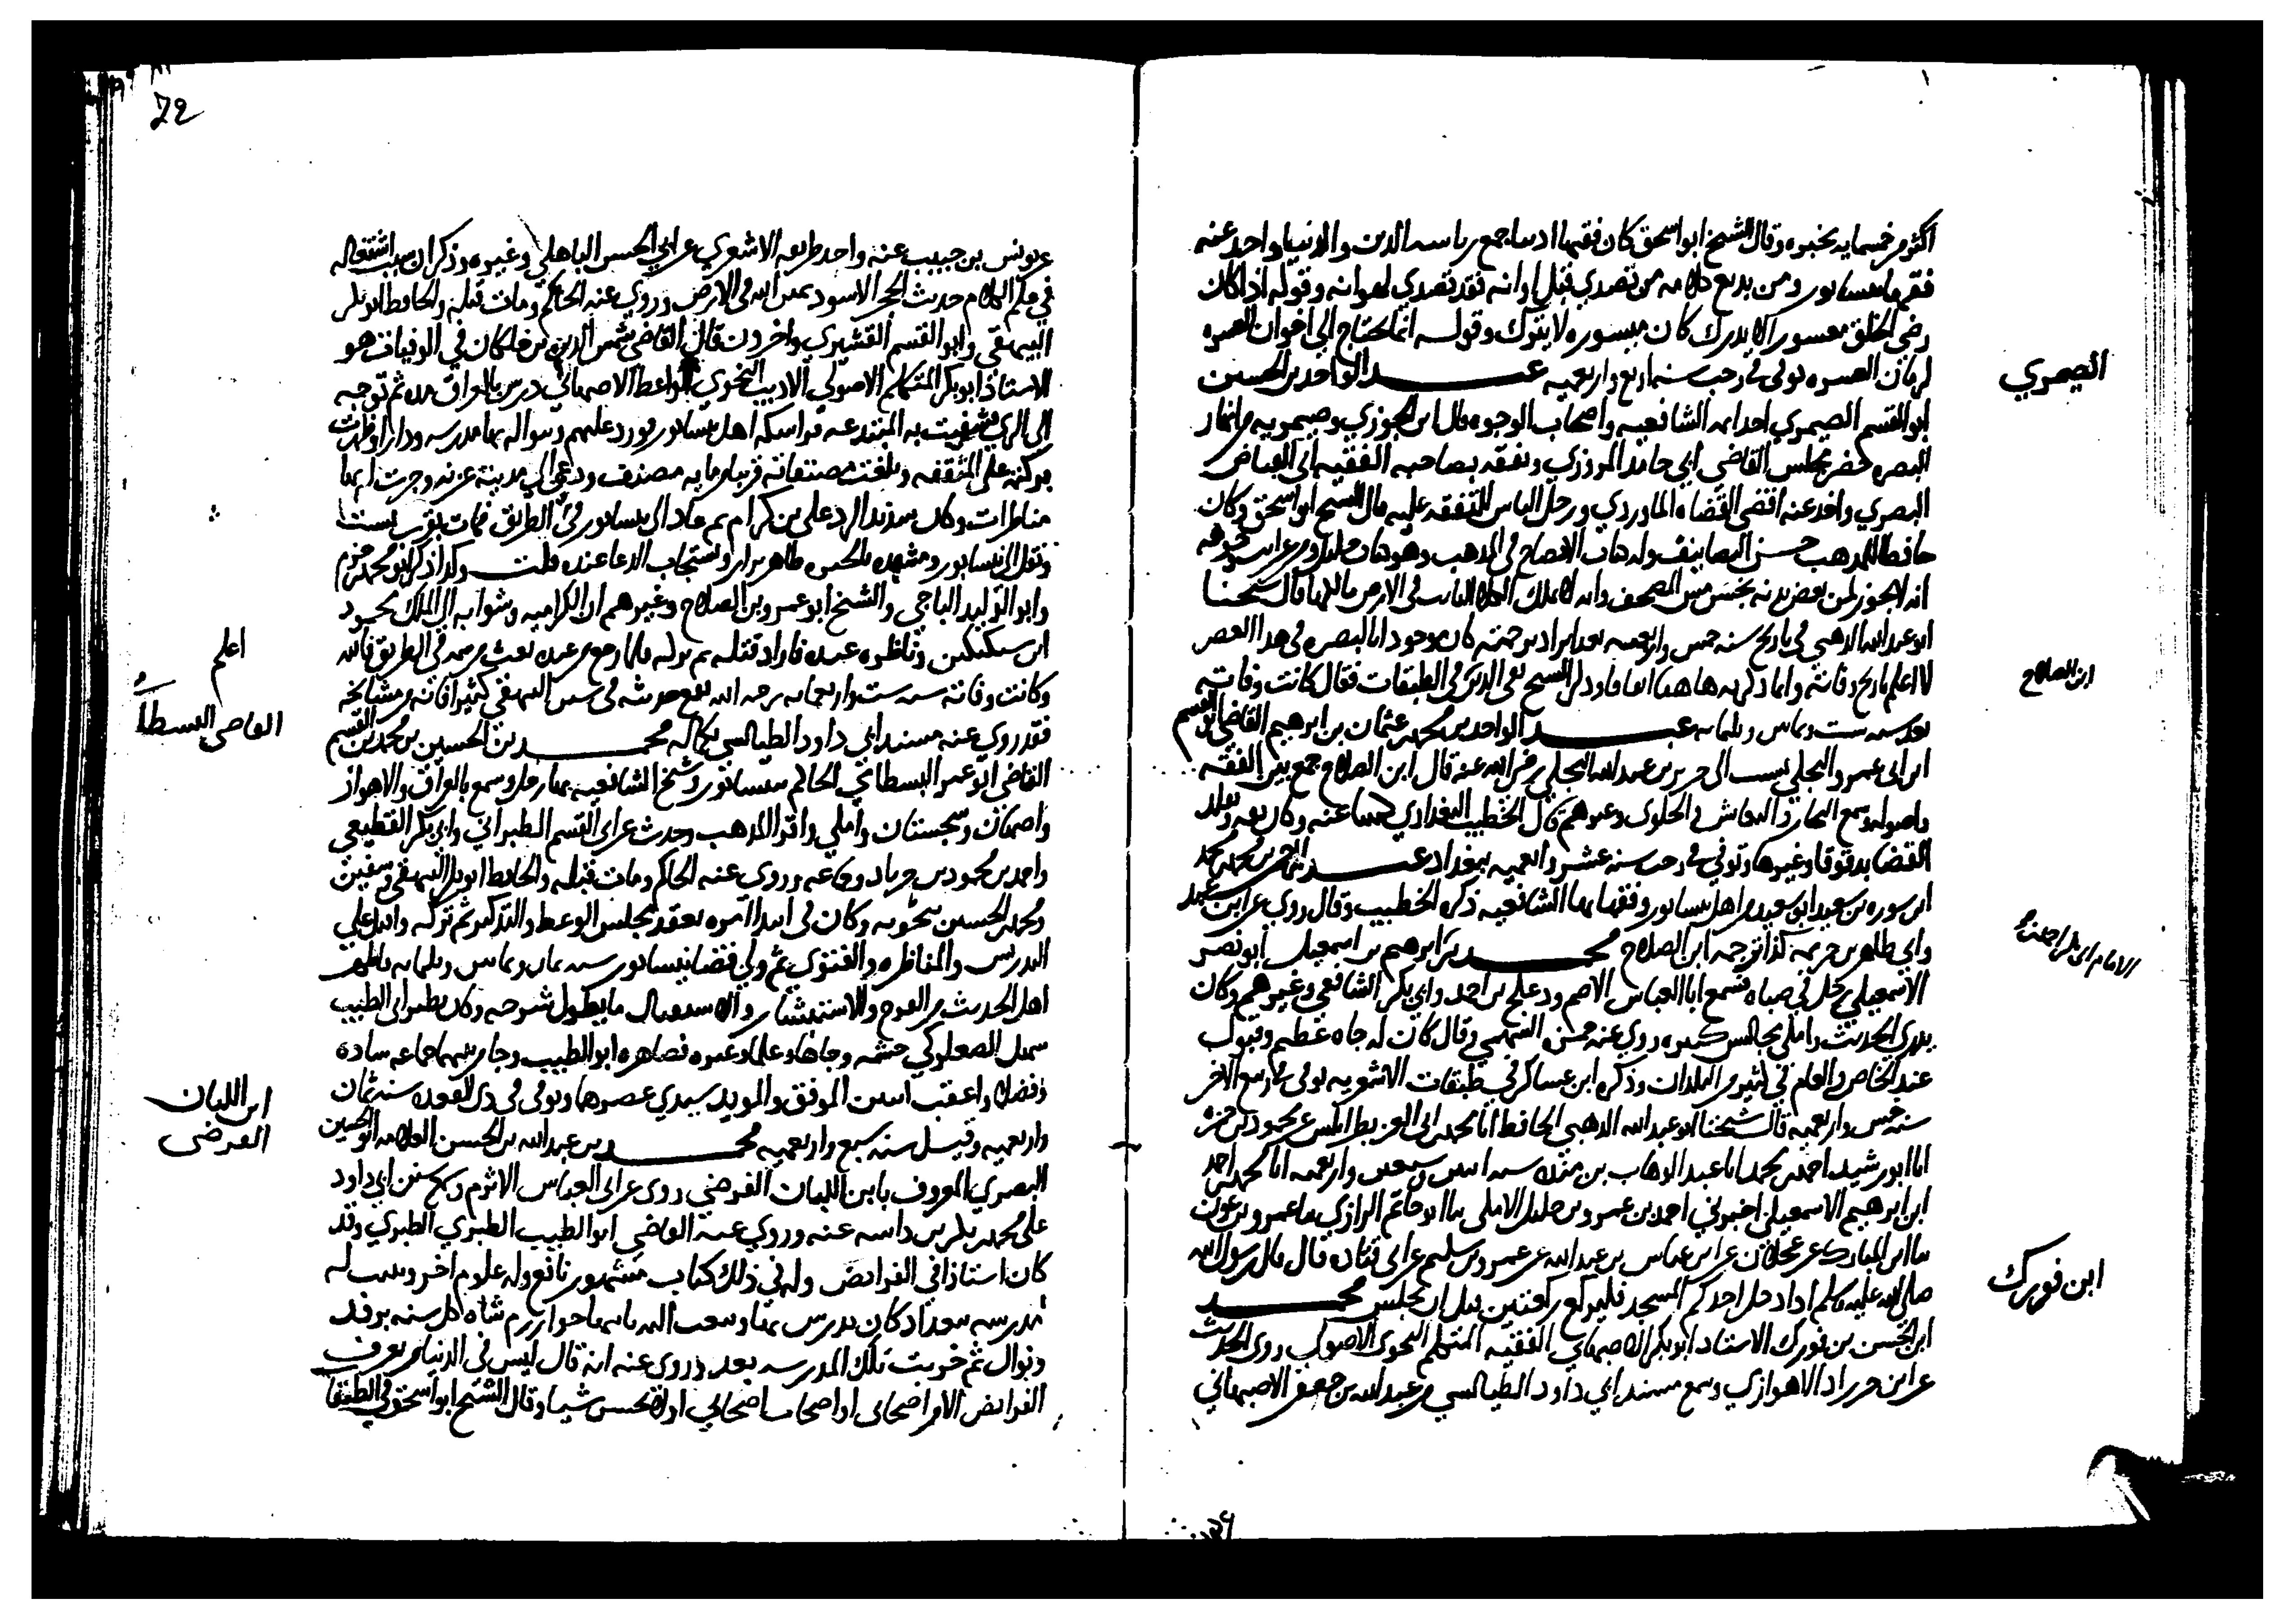 اكثر من خمسمايه محبره وقال الشيخ ابو اسحق كان فقيها اديبا جمع رياسه الدين والدنيا واخذ عنه
فقها نيسابور ومن بديع كلامه من تصدي قبل اوانه فقد تصدي لهوانه وقوله اذا كان
رضي الخلق معسور لا يدرك كان ميسوره لا يترك وقوله انما يحتاج الي اخوان العسره
لزمان العسره توفي في رجب سنه اربع واربعميه عبد الواحد بن الحسين
ابو القسم الصيمري احد ايمه الشافعيه واصحاب الوجوه قال ابن الجوزي وصيمر نهر من انهار
البصره حضر مجلس القاضي ابي حامد المروزي وتفقه بصاحبه الفقيه ابي الفياض
البصري واخذ عنه اقضي القضاه الماوردي ورحل الناس للتفقه عليه قال الشيخ ابو اسحق وكان
حافظا للمذهب حسن التصانيف وله كتاب الافصاح في المذهب
انه لا يجوز لمن بعض بدنه نجس مس المصحف وانه لا يملك الكلا النابت في الارض مالكها قال شيخنا
ابو عبد الله الذهبي في تاريخ سنه خمس واربعميه بعد ايراد ترجمته كان موجودا بالبصره في هذا العصر
لا اعلم تاريخ وفاته وانما ذكرته هاهنا اتفاقا وذكر الشيخ تقي الدين في الطبقات فقال كانت وفاته
بعد سنه ست وثمانين وثلثمايه عبد الواحد بن محمد بن عثمان بن ابرهيم القاضي ابو القسم
ابن ابي عمرو البجلي نسب الي جرير بن عبد الله البجلي رضي الله عنه قال ابن الصلاح جمع بين الفقه
واصوله وسمع النجاد والنقاش والخلدي وغيرهم قال الخطيب البغدادي كتبنا عنه وكان ثقه وتقلد
القضا بدقوقا وغيرها وتوفي في رجب سنه عشر واربعميه ببغداد عبد الرحمن بن محمد بن محمد
ابن سوره بن سعيد ابو سعيد من اهل نيسابور وفقهايها الشافعيه ذكره الخطيب وقال روي عن ابن عبيد
وابي طاهر بن خزيمه كذا ترجمه ابن الصلاح محمد بن ابرهيم بن اسمعيل ابو نصر
الاسمعيلي رحل في صباه فسمع ابا العباس الاصم ودعلج بن احمد وابي بكر الشافعي وغيرهم وكان
يدري الحديث واملي مجالس كثيره روي عنه حمزه السهمي وقال كان له جاه عظيم وقبول
عند الخاص والعام في كثير من البلدان وذكره ابن عساكر في طبقات الاشعريه توفي في ربيع الاخر
سنه خمس واربعميه قال شيخنا ابو عبد الله الذهبي الحافظ انا محمد بن ابي العز بطرابلس عن محمود بن منده
انا ابو رشيد احمد بن محمد انا عبد الوهاب بن منده سنه اثنين وسبعين واربعمه انا محمد بن احمد
ابن ابرهيم الاسمعيلي اخبرني احمد بن عمرو بن خليل الاملي ثنا ابو حاتم الرازي ثنا عمرو بن عون
ثنا ابن المبارك عن ابن عجلان عن ابن عباس بن عبد الله عن عمرو بن سليم عن ابي قتاده قال قال رسول الله
صلي الله عليه وسلم اذا دخل احدكم المسجد فليركع ركعتين قبل ان يجلس محمد
ابن الحسن بن فورك الاستاذ ابو بكر الاصبهاني الفقيه المتكلم النحوي الاصولي روي الحديث
عن ابن خرزاذ الاهوازي وسمع مسند ابي داود الطيالسي من عبد الله بن جعفر الاصبهاني
الصيمري
ابن الصلاح
ابن فورك
72
عن يونس بن حبيب عنه واخذ طريقه الاشعري عن ابي الحسن الباهلي وغيره وذكر ان سبب اشتغاله
في علم الكلام حديث الحجر الاسود يمين الله في الارض وروي عنه الحاكم ومات قبله والحافظ ابو بكر
البيهقي وابو القسم القشيري واخرون قال القاضي شمس الدين بن خلكان في الوفيات هو
الاستاذ ابو بكر المتكلم الاصولي الاديب النحوي الواعظ الاصبهاني درس بالعراق مده ثم توجه
الي الري فسعت به المبتدعه فراسله اهل نيسابور فورد عليهم وبنوا له بها مدرسه ودارا وظهرت
بركته علي المتفقهه وبلغت مصنفاته قريبا من مايه مصنف ودعي الي مدينة غزنه وجرت له بها
مناظرات وكان شديد الرد علي بن كرام ثم عاد الي نيسابور فسم في الطريق فمات بقرب بست
ونقل الي نيسابور ومشهده بالحيره ظاهر يزار ويستجاب الدعا عنده قلت وكذا ذكر ابو محمد بن حزم
وابو الوليد الباجي والشيخ ابو عمرو بن الصلاح وغيرهم ان الكراميه وشوا به الي الملك محمود
ابن سبكتكين وناظره عنده فاراد قتله ثم تركه فلما رجع من عنده بعث من سمه في الطريق فالله
وكانت وفاته سنه ست واربعمايه رحمه الله يقع حديثه في سنن البيهقي كثيرا فانه من مشايخه
فقد روي عنه مسند ابي داود الطيالسي بكماله محمد بن الحسين بن محمد بن القسم
القاضي ابو عمر البسطامي الحاكم بنيسابور وشيخ الشافعيه بها رحل وسمع بالعراق والاهواز
واصبهان وسجستان واملي واقرا المذهب وحدث عن ابي القسم الطبراني وابي بكر القطيعي
واحمد بن محمود بن خرزاد وجماعه وروي عنه الحاكم ومات قبله والحافظ ابو بكر البيهقي وسفين
ومحمد بن الحسين بن فنجويه وكان في ابتدا امره يعقد مجلس الوعظ والتذكير ثم تركه واقبل علي
التدريس والمناظره والفتوي ثم ولي قضا نيسابور سنه ثمان وثمانين وثلثمايه فاظهر
اهل الحديث من الفرح والاستبشار والاستقبال ما يطول شرحه وكان نظير ابي الطيب
سهل الصعلوكي حشمه وجاها وعلما وعزه فصاهره ابو الطيب وجا من بينهما جماعه ساده
وفضلا واعقب ابنين الموفق والمويد سيدي عصرهما وتوفي في ذي القعده سنه ثمان
واربعميه وقيل سنه سبع واربعميه محمد بن عبد الله بن الحسن العلامه ابو الحسين
البصري المعروف بابن اللبان الفرضي روي عن ابي العباس الاثرم وسمع سنن ابي داود
علي محمد بن بكر بن داسه عنه وروي عنه القاضي ابو الطيب الطبري الطبري وقد
كان استاذا في الفرايض وله في ذلك كتاب مشهور نافع وله علوم اخر وبنيت له
مدرسه ببغداد كان يدرس بها وبعث اليه خوارزم شاه كل سنه بوفد
ونوال ثم خربت تلك المدرسه بعد وروي عنه انه قال ليس في الدنيا من يعرف
الفرايض الا من اصحابي او اصحاب اصحابي او لا يحسن شيا وقال الشيخ ابو اسحق في الطبقات
اعلم
القاضي البسطامي
ابن اللبان
الفرضي